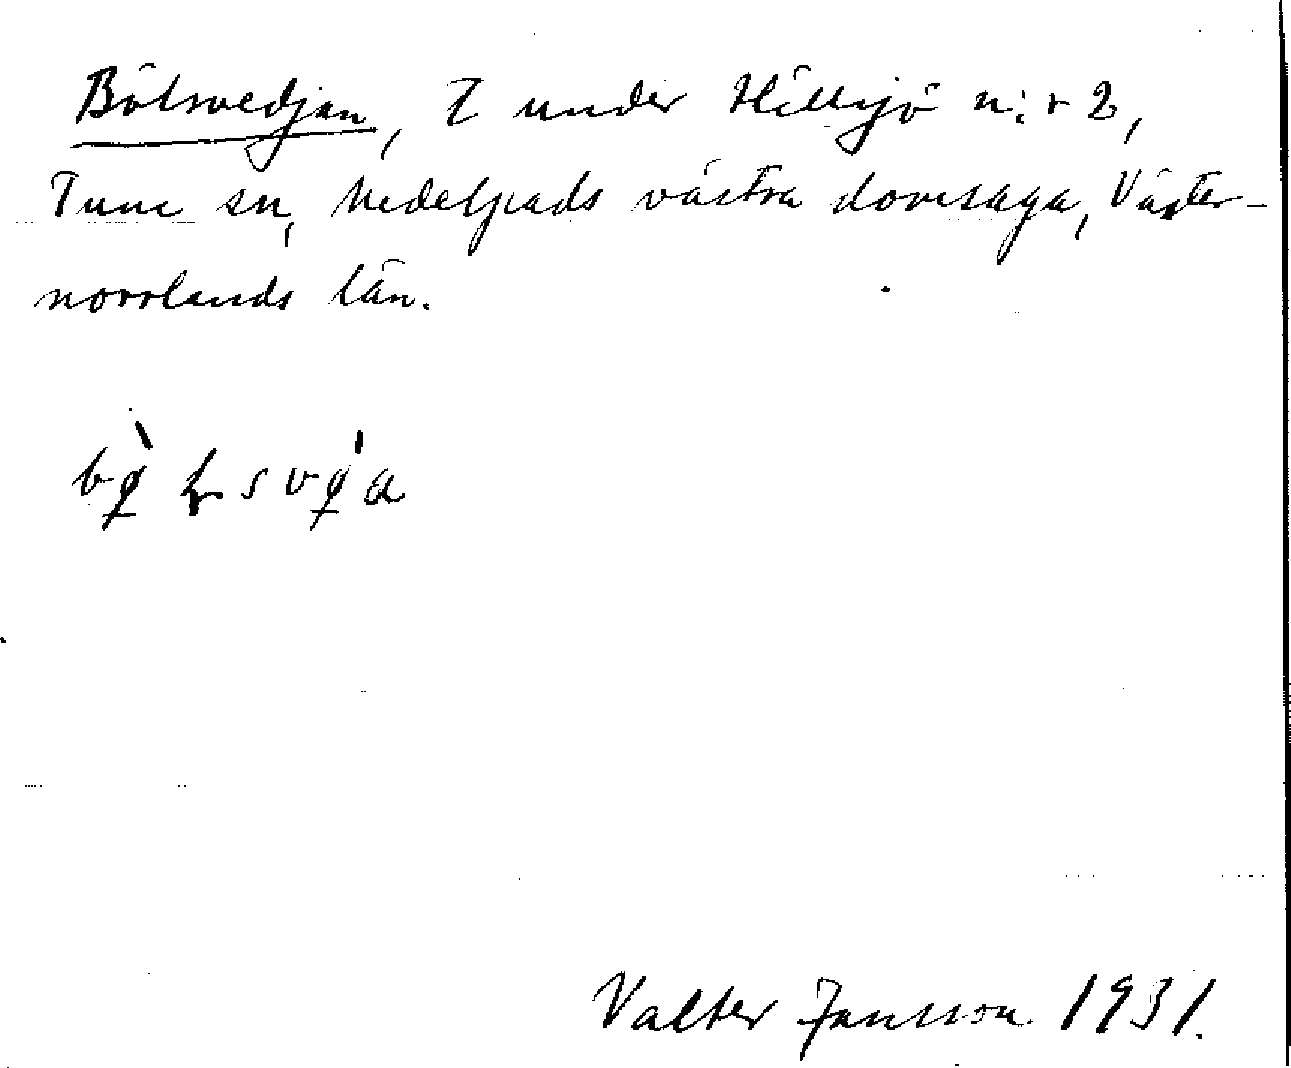 Bölsvedjan, T under Hällsjö n:r 2,
Tuna sn, Medelpads västra domsaga, Väster-
norrlands län.
Valter Jansson 1931.